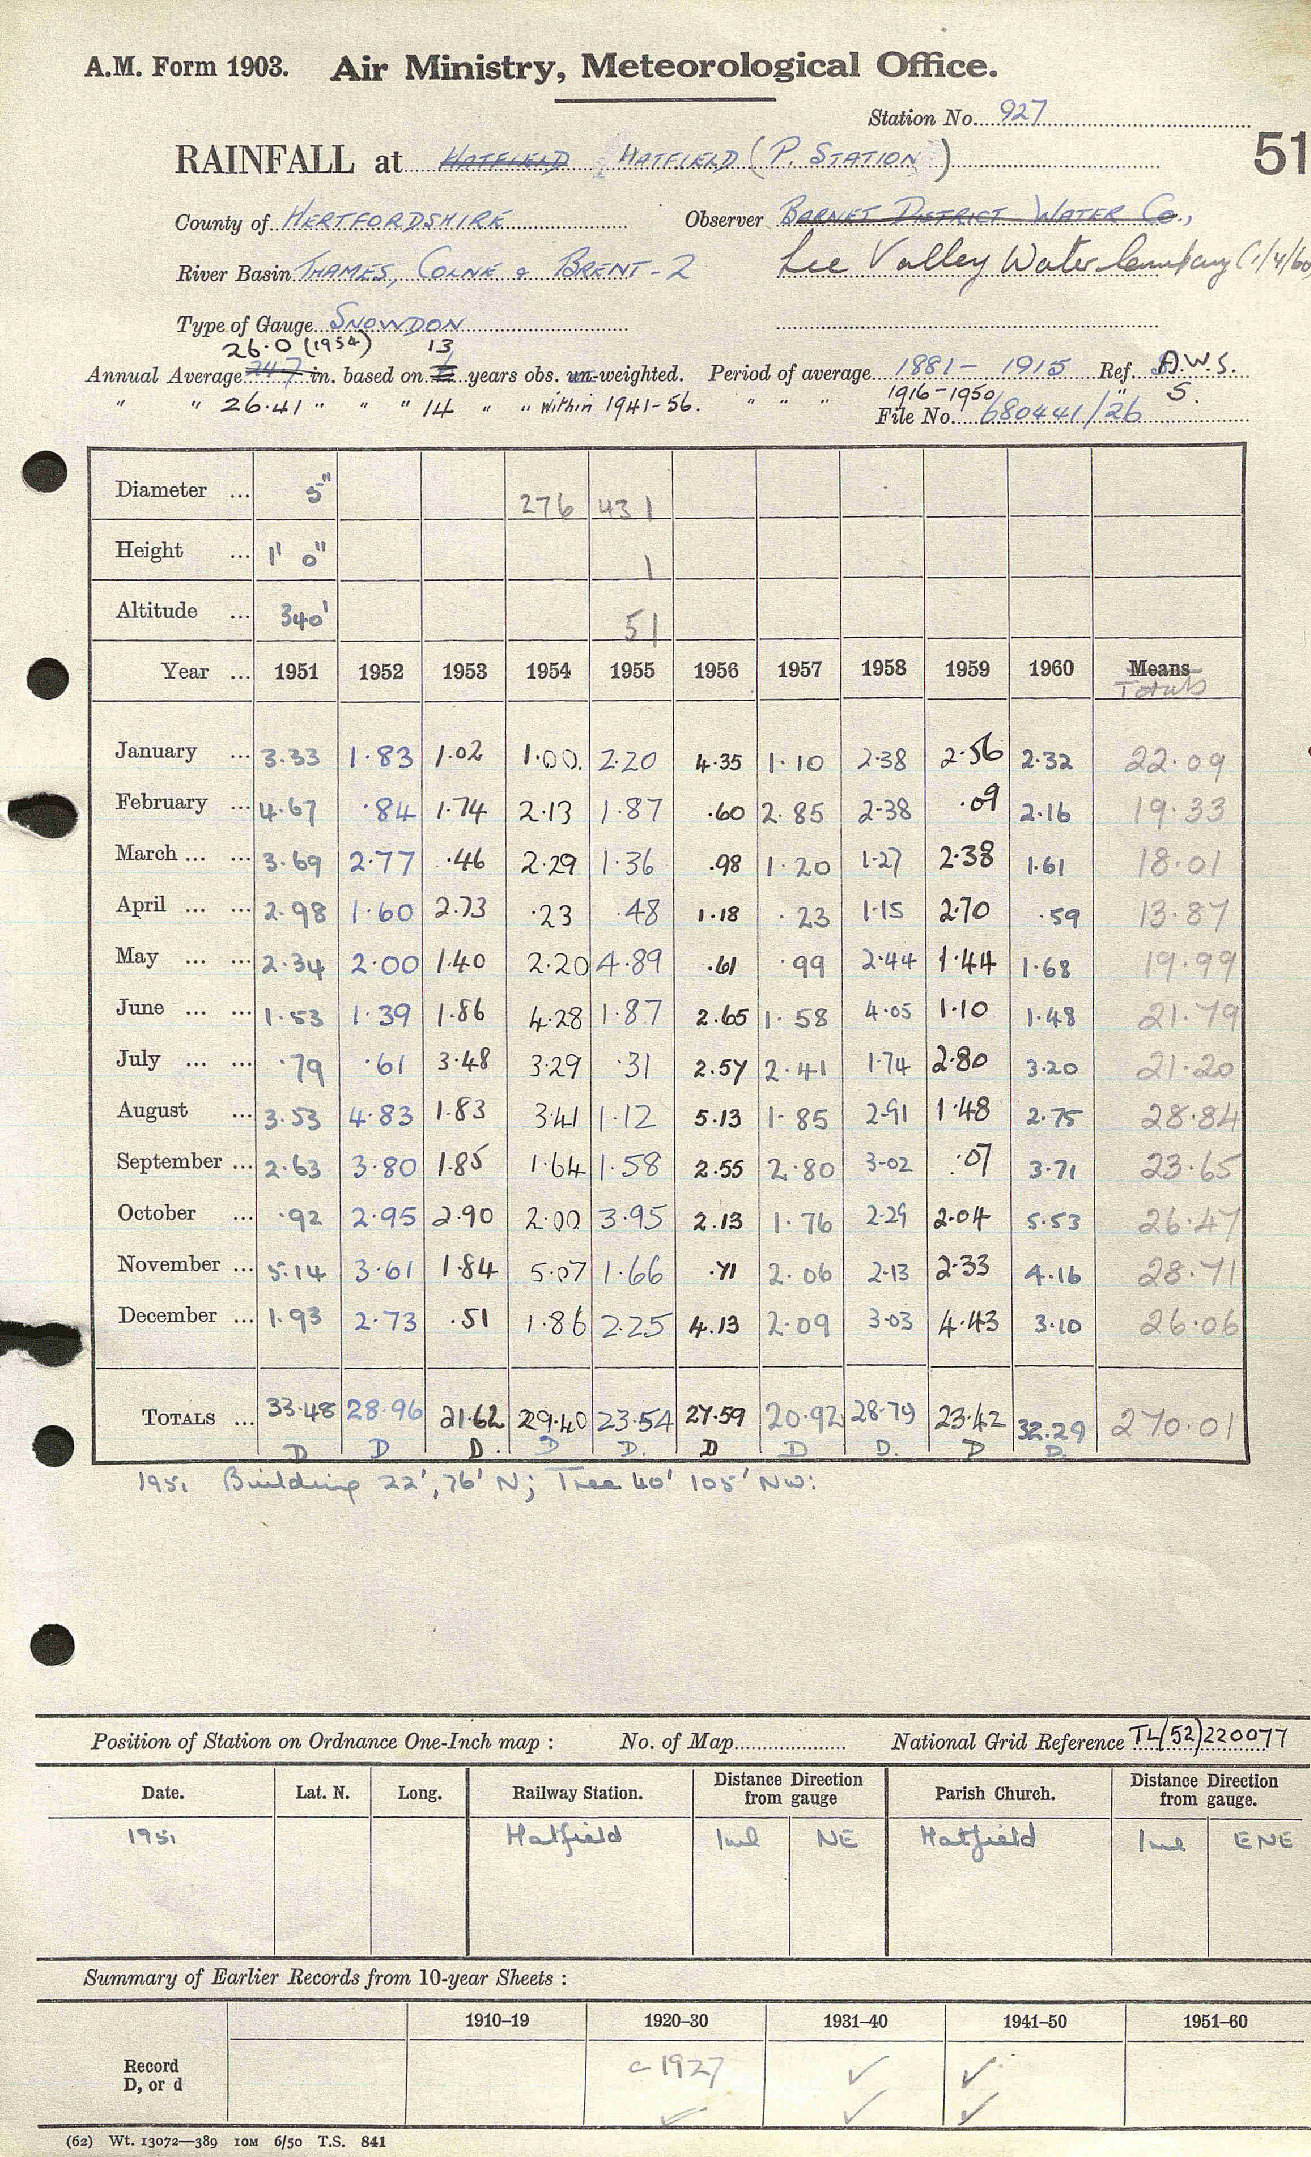 A.M. Form 1903. Air Ministry, Meteorological Office.
Station No. 927
RAINFALL at HATFIELD HATFIELD (P. STATION)
51
County of HERTFORDSHIRE Observer BARNET DISTRICT WATER Co.,
River Basin THAMES, COLNE & BRENT-2 Lee Valley Water Company (1/4/60)
Type of Gauge SNOWDON
26.0 (1954) 13
Annual Average 24.7 in. based on years obs. un-weighted. Period of average 1881- 1915 Ref. A.W.S.
" " 26.41 " " " 14 " " within 1941-56. " " " 1916-1950 " S.
File No. 680441/26
Diameter ... 5" 276 431
Height ... 1' 0" 1
Altitude ... 340' 51
Year ... 1951 1952 1953 1954 1955 1956 1957 1958 1959 1960 Means
Totals
January ... 3.33 1.83 1.02 1.00. 2.20 4.35 1.10 2.38 2.56 2.32 22.09
February ... 4.67 .84 1.74 2.13 1.87 .60 2.85 2.38 .09 2.16 19.33
March ... ... 3.69 2.77 .46 2.29 1.36 .98 1.20 1.27 2.38 1.61 18.01
April ... ... 2.98 1.60 2.73 .23 .48 1.18 .23 1.15 2.70 .59 13.87
May ... ... 2.34 2.00 1.40 2.20 4.89 .61 .99 2.44 1.44 1.68 19.99
June ... ... 1.53 1.39 1.86 4.28 1.87 2.65 1.58 4.05 1.10 1.48 21.79
July ... ... .79 .61 3.48 3.29 .31 2.57 2.41 1.74 2.80 3.20 21.20
August ... 3.53 4.83 1.83 3.41 1.12 5.13 1.85 2.91 1.48 2.75 28.84
September ... 2.63 3.80 1.85 1.64 1.58 2.55 2.80 3.02 .07 3.71 23.65
October ... .92 2.95 2.90 2.00 3.95 2.13 1.76 2.29 2.04 5.53 26.47
November ... 5.14 3.61 1.84 5.07 1.66 .71 2.06 2.13 2.33 4.16 28.71
December ... 1.93 2.73 .51 1.86 2.25 4.13 2.09 3.03 4.43 3.10 26.06
TOTALS ... 33.48 28.96 21.62 29.40 23.54 27.59 20.92 28.79 23.42 32.29 270.01
D D D. D D. D D D. D D.
1951 Building 22', 76' N; Tree 40' 105' NW:
Position of Station on Ordnance One-Inch map : No. of Map National Grid Reference TL(52)220077
Date. Lat. N. Long. Railway Station. Distance Direction from gauge Parish Church. Distance Direction from gauge.
1951 Hatfield 1ml NE Hatfield 1ml ENE
Summary of Earlier Records from 10-year Sheets :
1910–19 1920–30 1931–40 1941–50 1951–60
Record
D, or d
c 1927 ✓ ✓
✓ ✓ ✓
(62) Wt. 13072—389 10M 6/50 T.S. 841